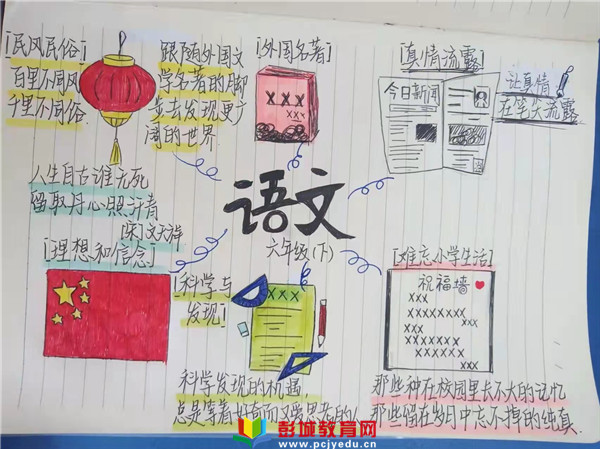 [民风民俗]
百里不同风
千里不同俗
跟随外国文
学名著的脚
步去发现更广
阔的世界
[外国名著]
XXX
XXX
[真情流露]
今日新闻
让真情
在笔尖流露
人生自古谁无死
留取丹心照汗青
[宋]文天祥
[理想和信念]
语文
六年级(下)
[科学与
发现]
XXX
科学发现的机遇,
总是等着好奇而又爱思考的人
[难忘小学生活]
祝福墙
XXX
XXXXX
XXXXXXX
XXX
XXXXX
XXXXXX
XXX
那些种在校园里长不大的记忆
那些留在岁月中忘不掉的纯真
彭城教育网
www.pcjyedu.cn